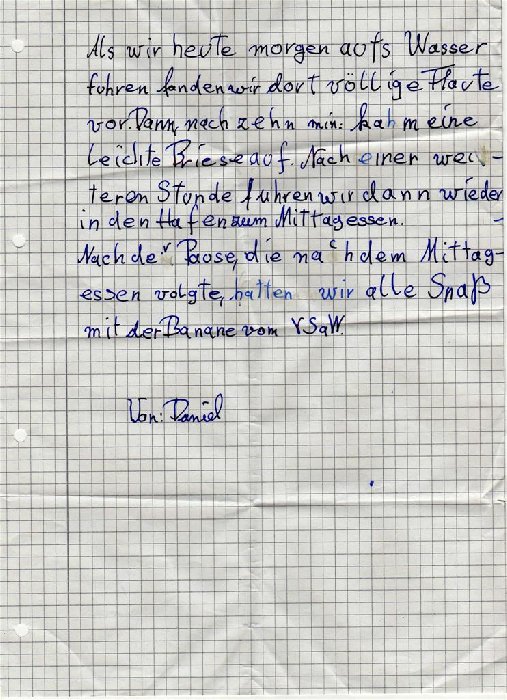 Als wir heute morgen aufs Wasser
fuhren fanden wir dort völlige Flaute
vor. Dann, nach zehn min: kahm eine
Leichte Briese auf. Nach einer wei-
teren Stunde fuhren wir dann wieder
in den Hafen zum Mittagessen.
Nach der Pause, die nach dem Mittag-
essen volgte, hatten wir alle Spaß
mit der Banane vom YSaW.
Von: Daniel